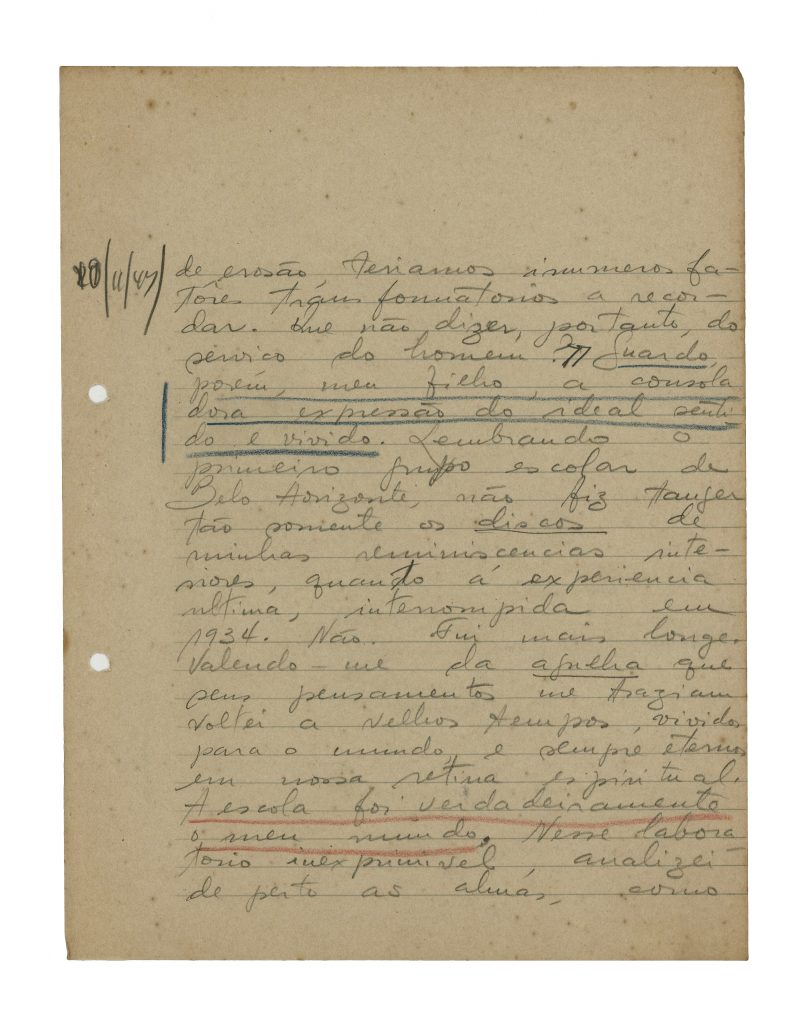 20/11/47
de erosão, teriamos inumeros fa-
tôres transformatorios a recor-
dar. Que não dizer, portanto, do
serviço do homem? Guardo,
porém, meu filho, a consola
dora expressão do ideal senti
do e vivido. Lembrando o
primeiro grupo escolar de
Belo Horizonte, não fiz tanger
tão somente os discos de
minhas reminiscencias inte-
riores, quanto á experiencia
ultima, interrompida em
1934. Não. Fui mais longe.
Valendo-me da agulha que
seus pensamentos me traziam
voltei a velhos tempos, vividos
para o mundo, e sempre eternos
em nossa retina espiritual.
A escola foi verdadeiramente
o meu mundo. Nesse labora
tório inexprimivel, analizei
de perto as almas, como